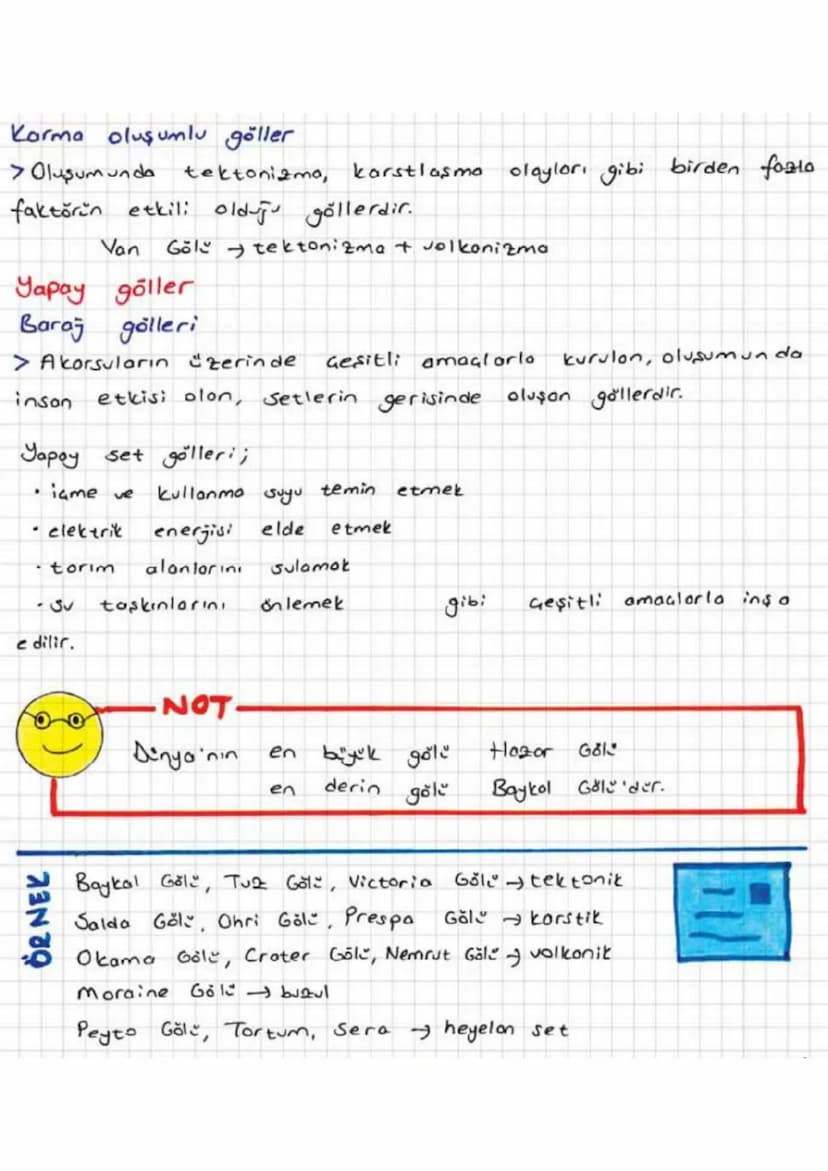 Karma oluşumlu göller
> Oluşumunda tektonizma, karstlaşma olayları gibi birden fazla
faktörün etkili olduğu göllerdir.
Van Gölü → tektonizma + volkanizma
Yapay göller
Baraj gölleri
> Akarsuların üzerinde çeşitli amaçlarla kurulan, oluşumunda
insan etkisi olan, setlerin gerisinde oluşan göllerdir.
Yapay set gölleri;
• içme ve kullanma suyu temin etmek
• elektrik enerjisi elde etmek
• tarım alanlarını sulamak
• su taşkınlarını önlemek gibi çeşitli amaçlarla inşa
edilir.
NOT
Dünya'nın en büyük gölü Hazar Gölü
en derin gölü Baykal Gölü'dür.
ÖRNEK
Baykal Gölü, Tuz Gölü, Victoria Gölü → tektonik
Salda Gölü, Ohri Gölü, Prespa Gölü → karstik
Okama Gölü, Crater Gölü, Nemrut Gölü → volkanik
Moraine Gölü → buzul
Peyto Gölü, Tortum, Sera → heyelan set